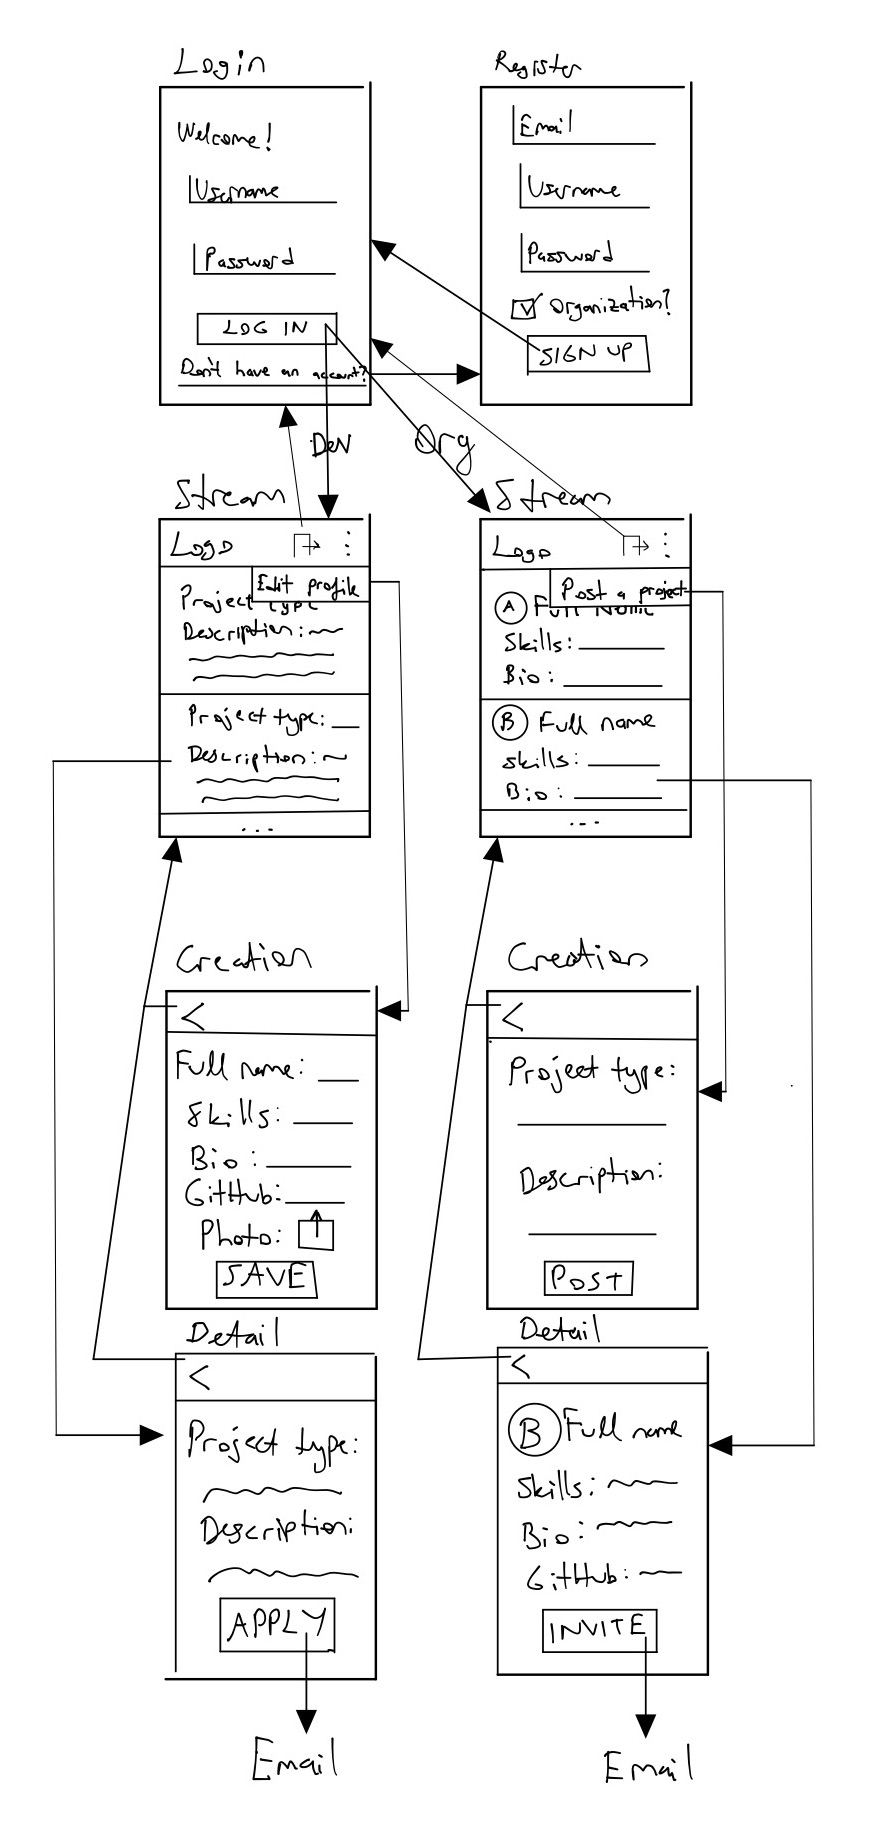 Login
Welcome!
Username
Password
LOG IN
Don't have an account?
Register
Email
Username
Password
Organization?
SIGN UP
Dev
Org
Stream
Logo
Edit profile
Project type
Description:
Project type:
Description:
...
Stream
Logo
Post a project
A Full Name
Skills:
Bio:
B Full name
Skills:
Bio:
...
Creation
<
Full name:
Skills:
Bio:
GitHub:
Photo:
SAVE
Creation
<
Project type:
Description:
POST
Detail
<
Project type:
Description:
APPLY
Email
Detail
<
B Full name
Skills:
Bio:
GitHub:
INVITE
Email